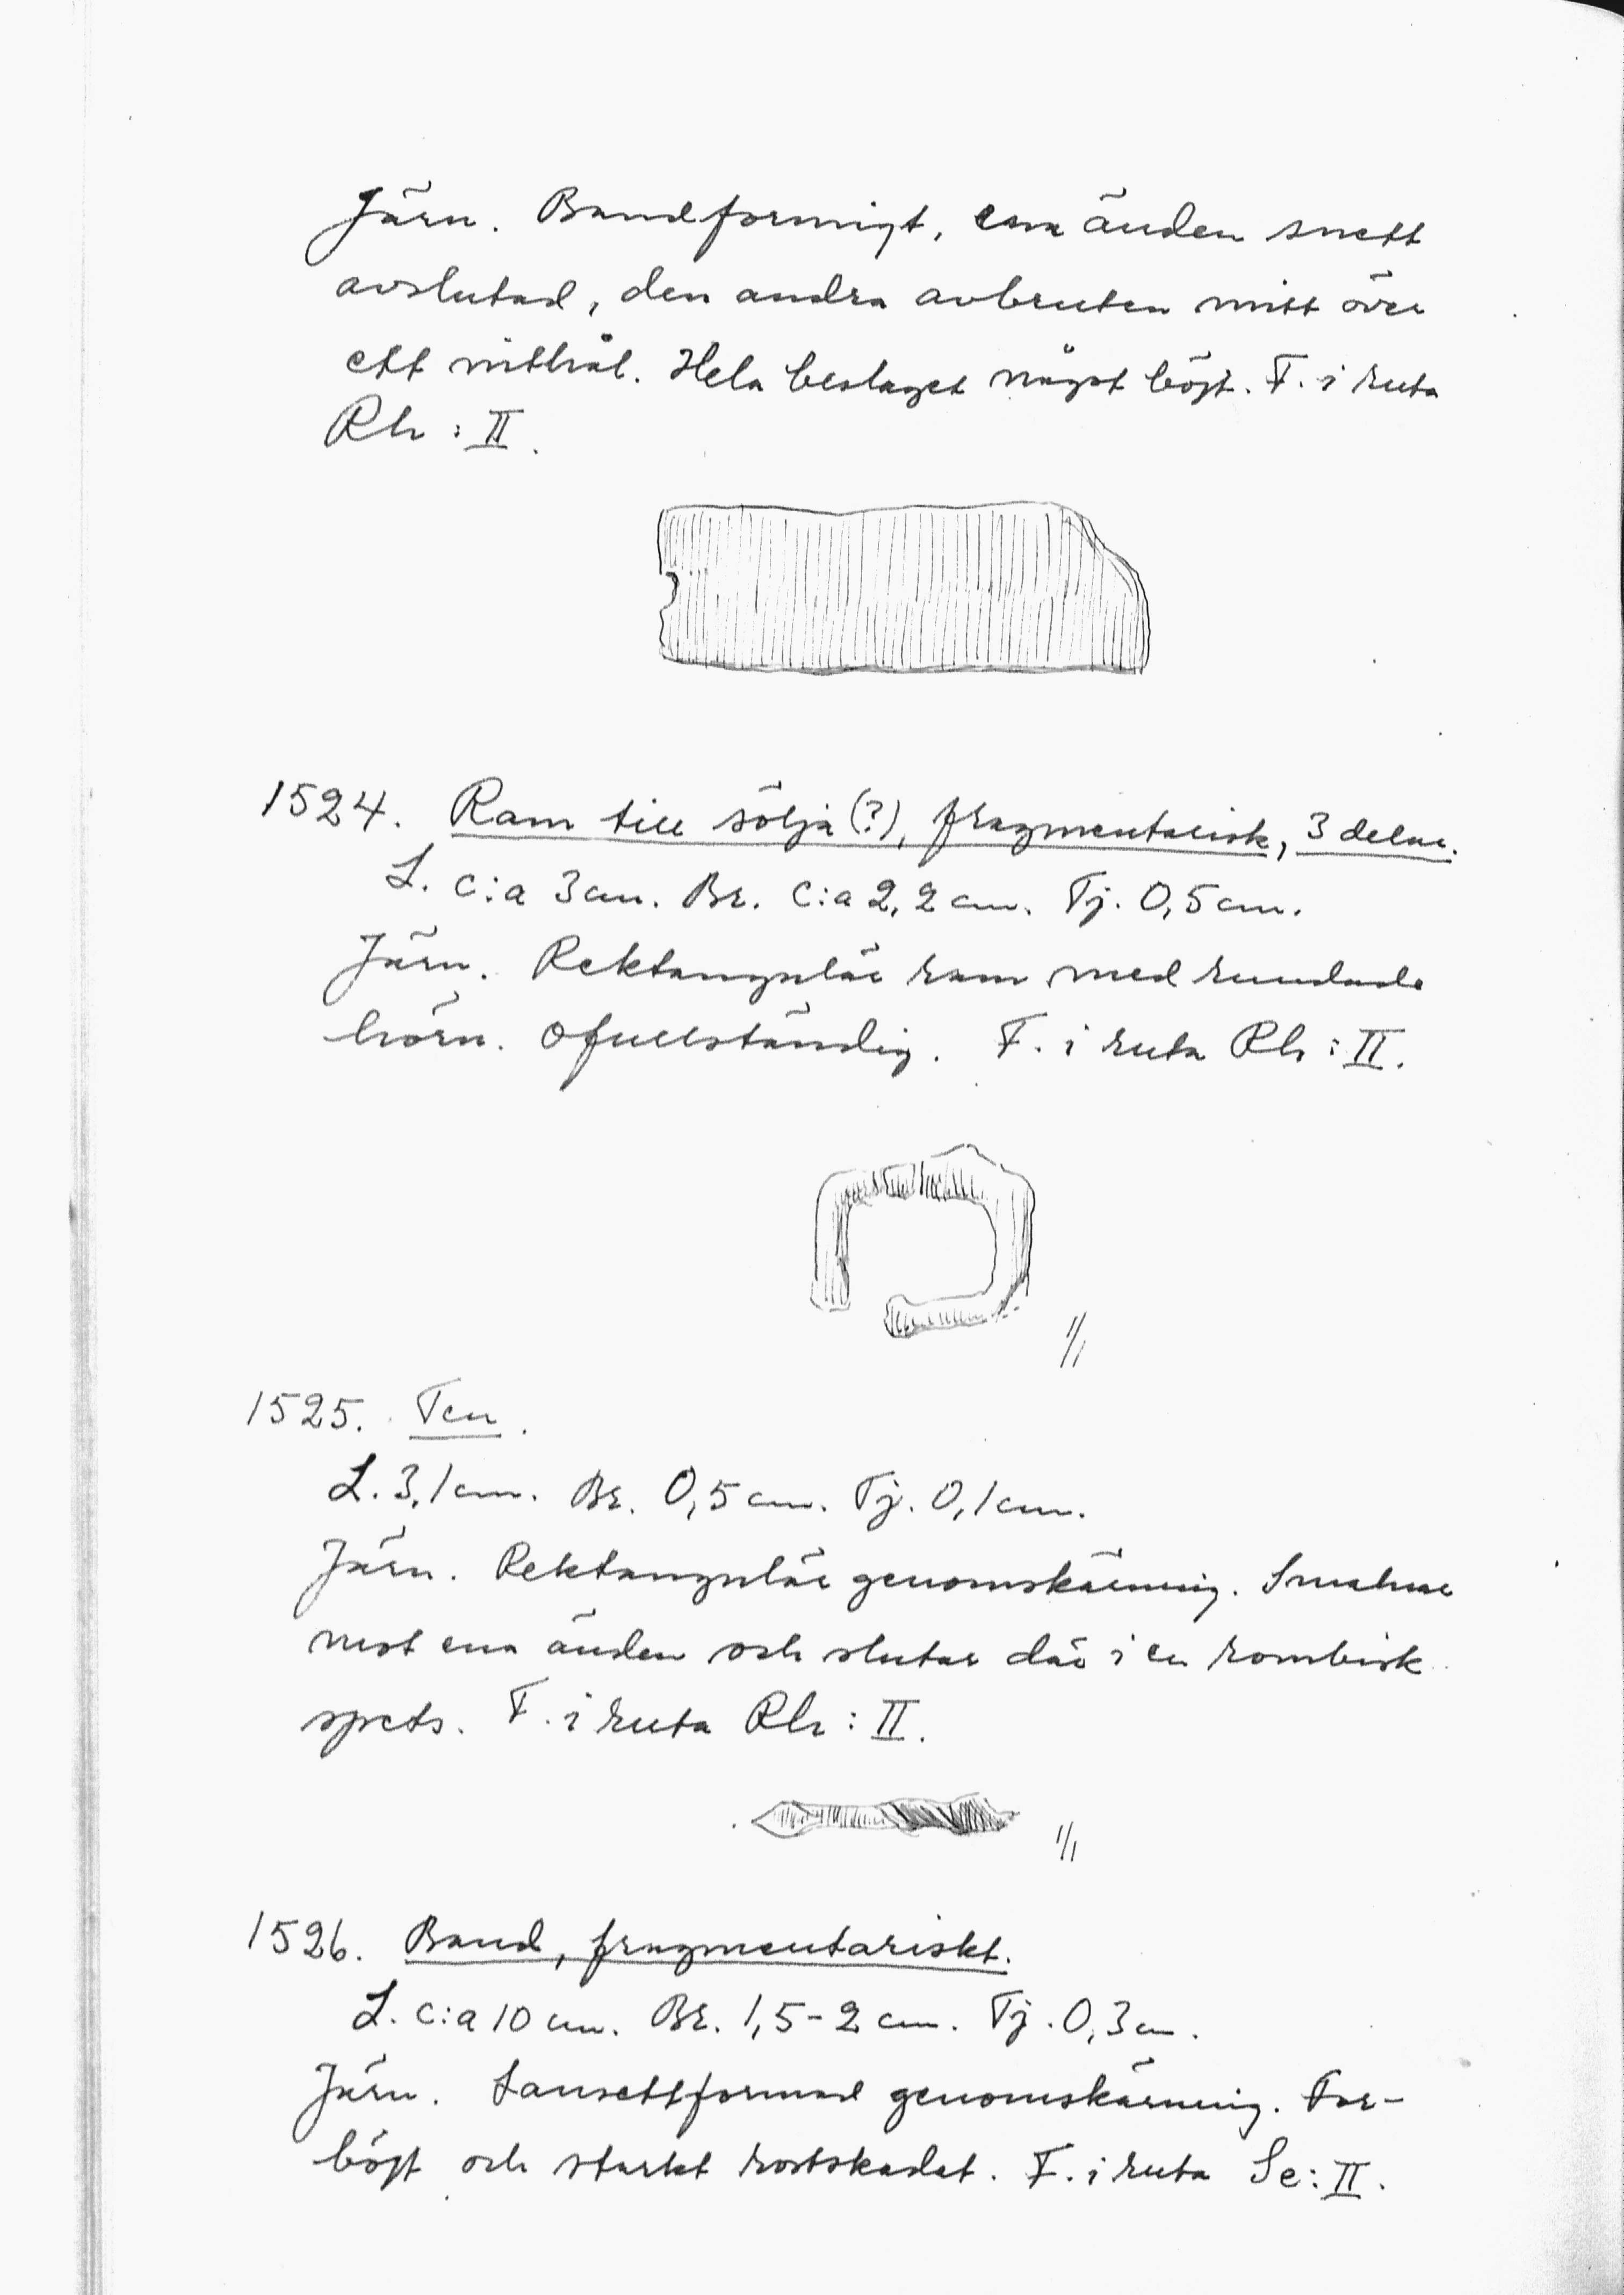 Järn. Bandformigt, ena änden snett
avslutad, den andra avbruten mitt över
ett nithål. Hela beslaget något böjt. F. i ruta
Rh : II.
1524. Ram till sölja (?), fragmentarisk, 3 delar.
L. c:a 3 cm. Br. c:a 2,2 cm. Tj. 0,5 cm.
Järn. Rektangulär ram med rundade
hörn. Ofullständig. F. i ruta Rh : II.
1/1
1525. Ten.
L. 3,1 cm. Br. 0,5 cm. Tj. 0,1 cm.
Järn. Rektangulär genomskärning. Smalnar
mot ena änden och slutar där i en rombisk
spets. F. i ruta Rh : II.
1/1
1526. Band, fragmentariskt.
L. c:a 10 cm. Br. 1,5-2 cm. Tj. 0,3 cm.
Järn. Lansettformad genomskärning. För-
böjt och starkt rostskadat. F. i ruta Se : II.